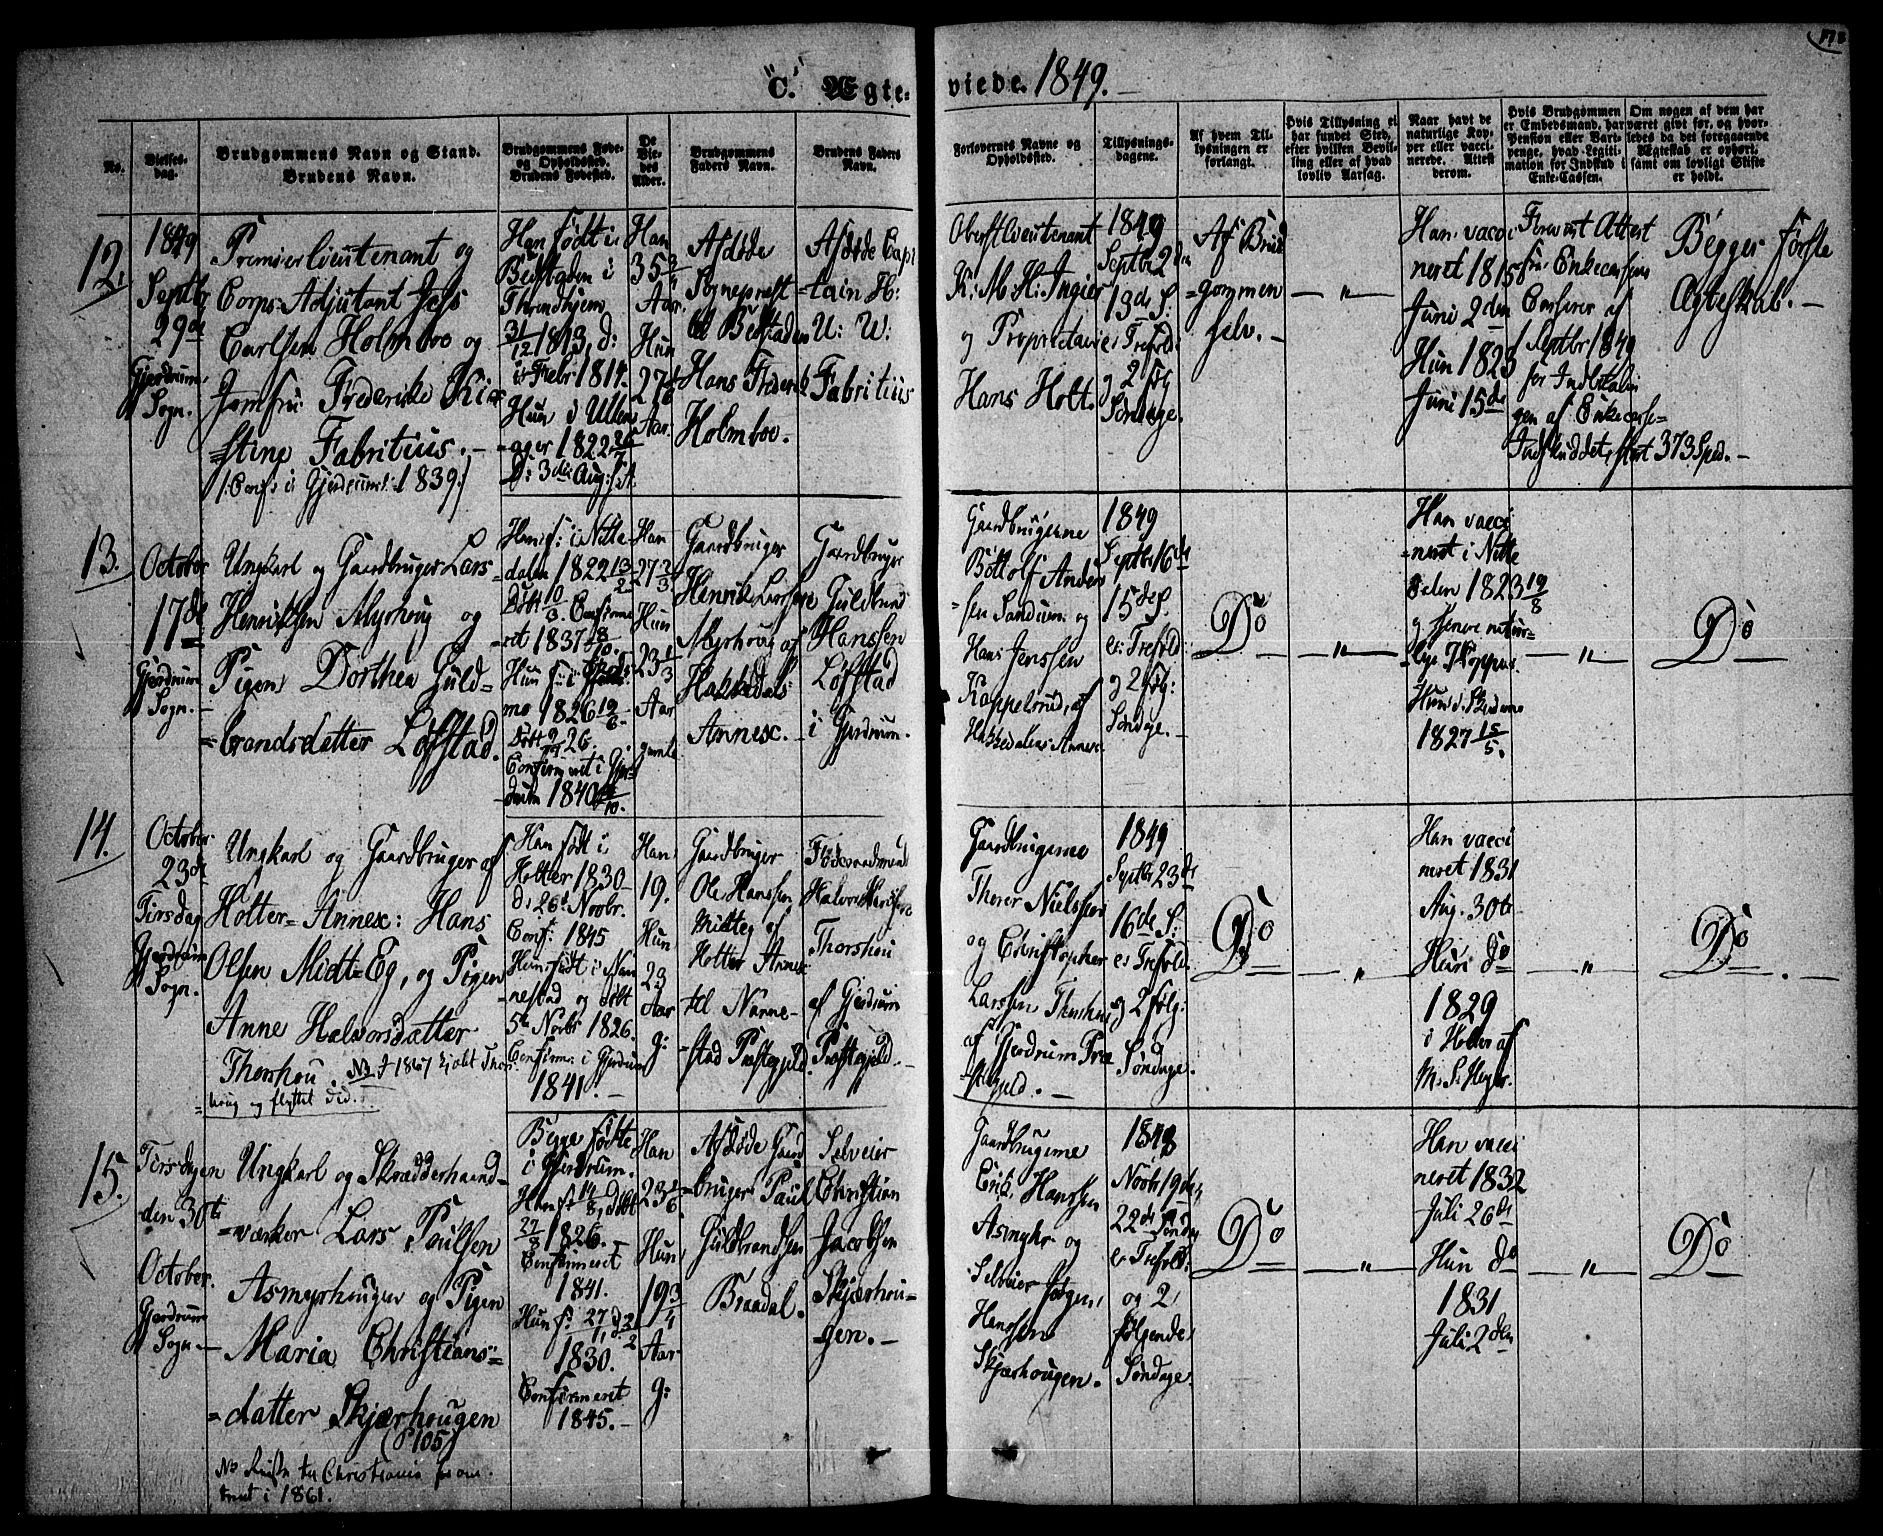 "C." Ægte-
viede. 1849.
No.
Vielses-
dag.
Brudgommens Navn og Stand.
Brudens Navn.
Brudgommens Føde-
og Opholdssted.
Brudens Fødested.
De
Vie-
des
Alder.
Brudgommens
Faders Navn.
Brudens Faders
Navn.
Forlovernes Navne og
Opholdssted.
Tillysnings-
dagene.
Af hvem Til-
lysningen er
forlangt.
Hvis Tillysning ei
har fundet Sted,
efter hvilken Bevil-
ling eller af hvad
lovlig Aarsag.
Naar havt de
naturlige Kop-
per eller vacci-
nerede. Attest
derom.
Hvis Brudgommen
er Embedsmand, har
Pension eller Vart-
penge, hvad Legiti-
mation for Indskud i
Enke-Cassen.
Om nogen af dem har
været givt før, og hvor-
ledes da det foregaaende
Ægteskab er ophørt,
samt om lovligt Skifte
er holdt.
12.
1849
Septbr
29de
Gjerdrums
Sogn.
Premierlieutenant og
Corps-Adjutant Jess
Carlsen Holmboe og
Jomfru Frederikke Kir
=stine Fabritius. -
/: Conf: i Gjerdrum: 1839:/
Han født i
Beitstaden i
Throndhjem
31/12 1813, d:
Febr 1814.
Hun i Ullen
=ager 1822 26/7.
D: 3die Aug: s. A.
Han
35 3/4
Aar.
Hun
27
Aar.
Afdøde
Sognepræst
til Beitstaden
Hans Frederik
Holmboe.
Afdøde Cap
=tain H:
U: W:
Fabritius
Oberstlieutenant
K: M: H: Ingier
og Proprietair
Hans Holt.
1849
Septbr 2den
13de S:
e: Trefold:
g 2 følg
Søndage.
Af Brud
=gommen
selv. -
— " —
Han vacci
neret 1815
Juni 2den
Hun 1823
Juni 15de
Forevist Attest
fra Enkecassens
Casserer af
1 Septbr 1849
for Indbetalin
gen af Enkecasse-
Indskuddet, stort 373 Spd. -
Begges første
Ægteskab. -
13.
October
17de
Gjerdrum
Sogn. -
Ungkarl og Gaardbruger Lars
Henriksen Myrhoug og
Pigen Dorthea Guld=
=brandsdatter Löfstad.
Han f: i Nitte
dalen 1822 13/2
Døbt 10/3. Confirme
ret 1837 8/10.
Hun f: i
1826
Døbt
Confirmeret i Gjer=
drum 1840
Han
27 2/3
Hun
23 1/3
Aar
gamle
Gaardbruger
Henrik Larsen
Myrhoug af
Hakkedals
Annex. -
Gaardbruger
Guldbrand
Hanssen
Löfstad
i Gjerdrum.
Gaardbrugerne
Bottolf Anders
=sen Sandum og
Hans Jenssen
Kappelsrud, af
Hakkedalens Annex.
1849
Septbr 16de
15de S.
e: Trefold:
g 2 følg:
Søndage. -
Do
— " —
Han vacci
=neret i Nitte
dalen 1823 19/8
og senere natur=
lige Kopper
Hun i
1827 15/5.
— " —
Do
14.
October
23de
Tirsdag
Gjerdrum
Sogn.
Ungkarl og Gaardbruger af
Holter=Annex: Hans
Olsen Midt=Eg, og Pigen
Anne Halvorsdatter
Thorshou. NB. I 1867 kjøbt Thors
=houg og flyttet did.
Han født i
Holter 1830
d: 26de Novbr.
Conf: 1845
Hun født i Nan
=nestad og døbt
5te Novbr 1826.
Confirm: i Gjerdrum
1841. -
Han
19.
Hun
23
Aar
g:
Gaardbruger
Ole Hanssen
Midteg af
Holter Annex
til Nanne-
=stad Præstegjeld.
Halvor
Thorshou
af Gjerdrum
Præstegjeld. -
Gaardbrugerne
Thorer Nielssen
og Christopher
Larssen Thorshou
af Gjerdrum Præ
=stegjeld. -
1849
Septbr 23de
16de S:
e: Trefold:
og 2 følg:
Søndage.
Do
— " —
Han vacci
neret 1831
Aug. 30te
Hun do
1829
i Holter af
M. S. Heyer.
— " —
Do
15.
Tirsdagen
den 30te
October.
Gjerdrum
Sogn. -
Ungkarl og Skrædderhaand=
=værker Lars Paulsen
Asmyrhougen og Pigen
Maria Christians=
=datter Skjærhougen
(P 105)
NB Reiste til Christiania for om
trent i 1861.
Begge fødte
i Gjerdrum.
Han f: 14/8, døbt
27/8 1826. -
Confirmeret
1841.
Hun f: 27/1, d 2/2
1830.
Confirmeret
1845. -
Han
23 1/6
Hun
19 3/4
Aar
g:
Afdøde Gaard
bruger Paul
Guldbrandsen
Braadal.
Selveier
Christian
Jacobsen
Skjærhou-
gen. -
Gaardbrugerne
Erik Hanssen
Asmyhr og
Selveier Jørgen
Hanssen
Skjærhougen.
1848
Novbr 19de,
22de Sønda
e: Trefold:
og 2
følgende
Søndage.
Do
— " —
Han vacci
neret 1832
Juli 26de
Hun do
1831
Juli 2den
— " —
Do